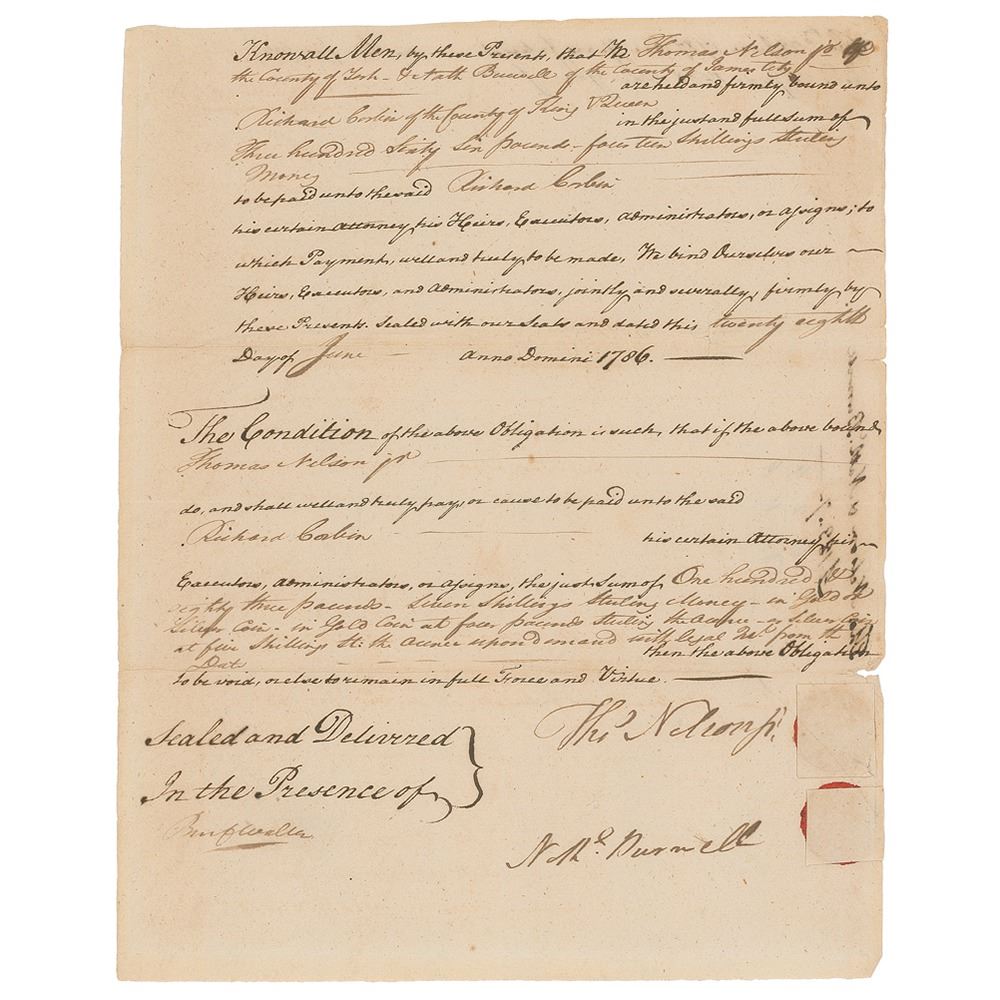 Know all Men, by these Presents, that We Thomas Nelson jr of
the County of York - & Nath Burwell of the County of James City
are held and firmly bound unto
Richard Corbin of the County of King & Queen
in the just and full sum of
Three hundred Sixty Six pounds - fourteen Shillings Sterling
Money
to be paid unto the said Richard Corbin
his certain Attorney, his Heirs, Executors, Administrators, or assigns; to
which Payment, well and truly to be made, We bind Ourselves our
Heirs, Executors, and Administrators, jointly and severally, firmly by
these Presents. Sealed with our Seals and dated this twenty eighth
Day of June Anno Domini 1786.
The Condition of the above Obligation is such, that if the above bound
Thomas Nelson jr
do, and shall well and truly pay, or cause to be paid unto the said
Richard Corbin his certain Attorney, his
Executors, Administrators, or assigns, the just Sum of One hundred &
eighty three pounds - Seven Shillings Sterling Money - in Gold or
Silver Coin - in Gold Coin at four pounds Sterling the Ounce - or Silver Coin
at five Shillings St: the Ounce upon demand with legal Intt from the
Date then the above Obligation
to be void, or else to remain in full Force and Virtue.
Sealed and Delivered
In the Presence of
Thos Nelson jr.
Nathl. Burwell